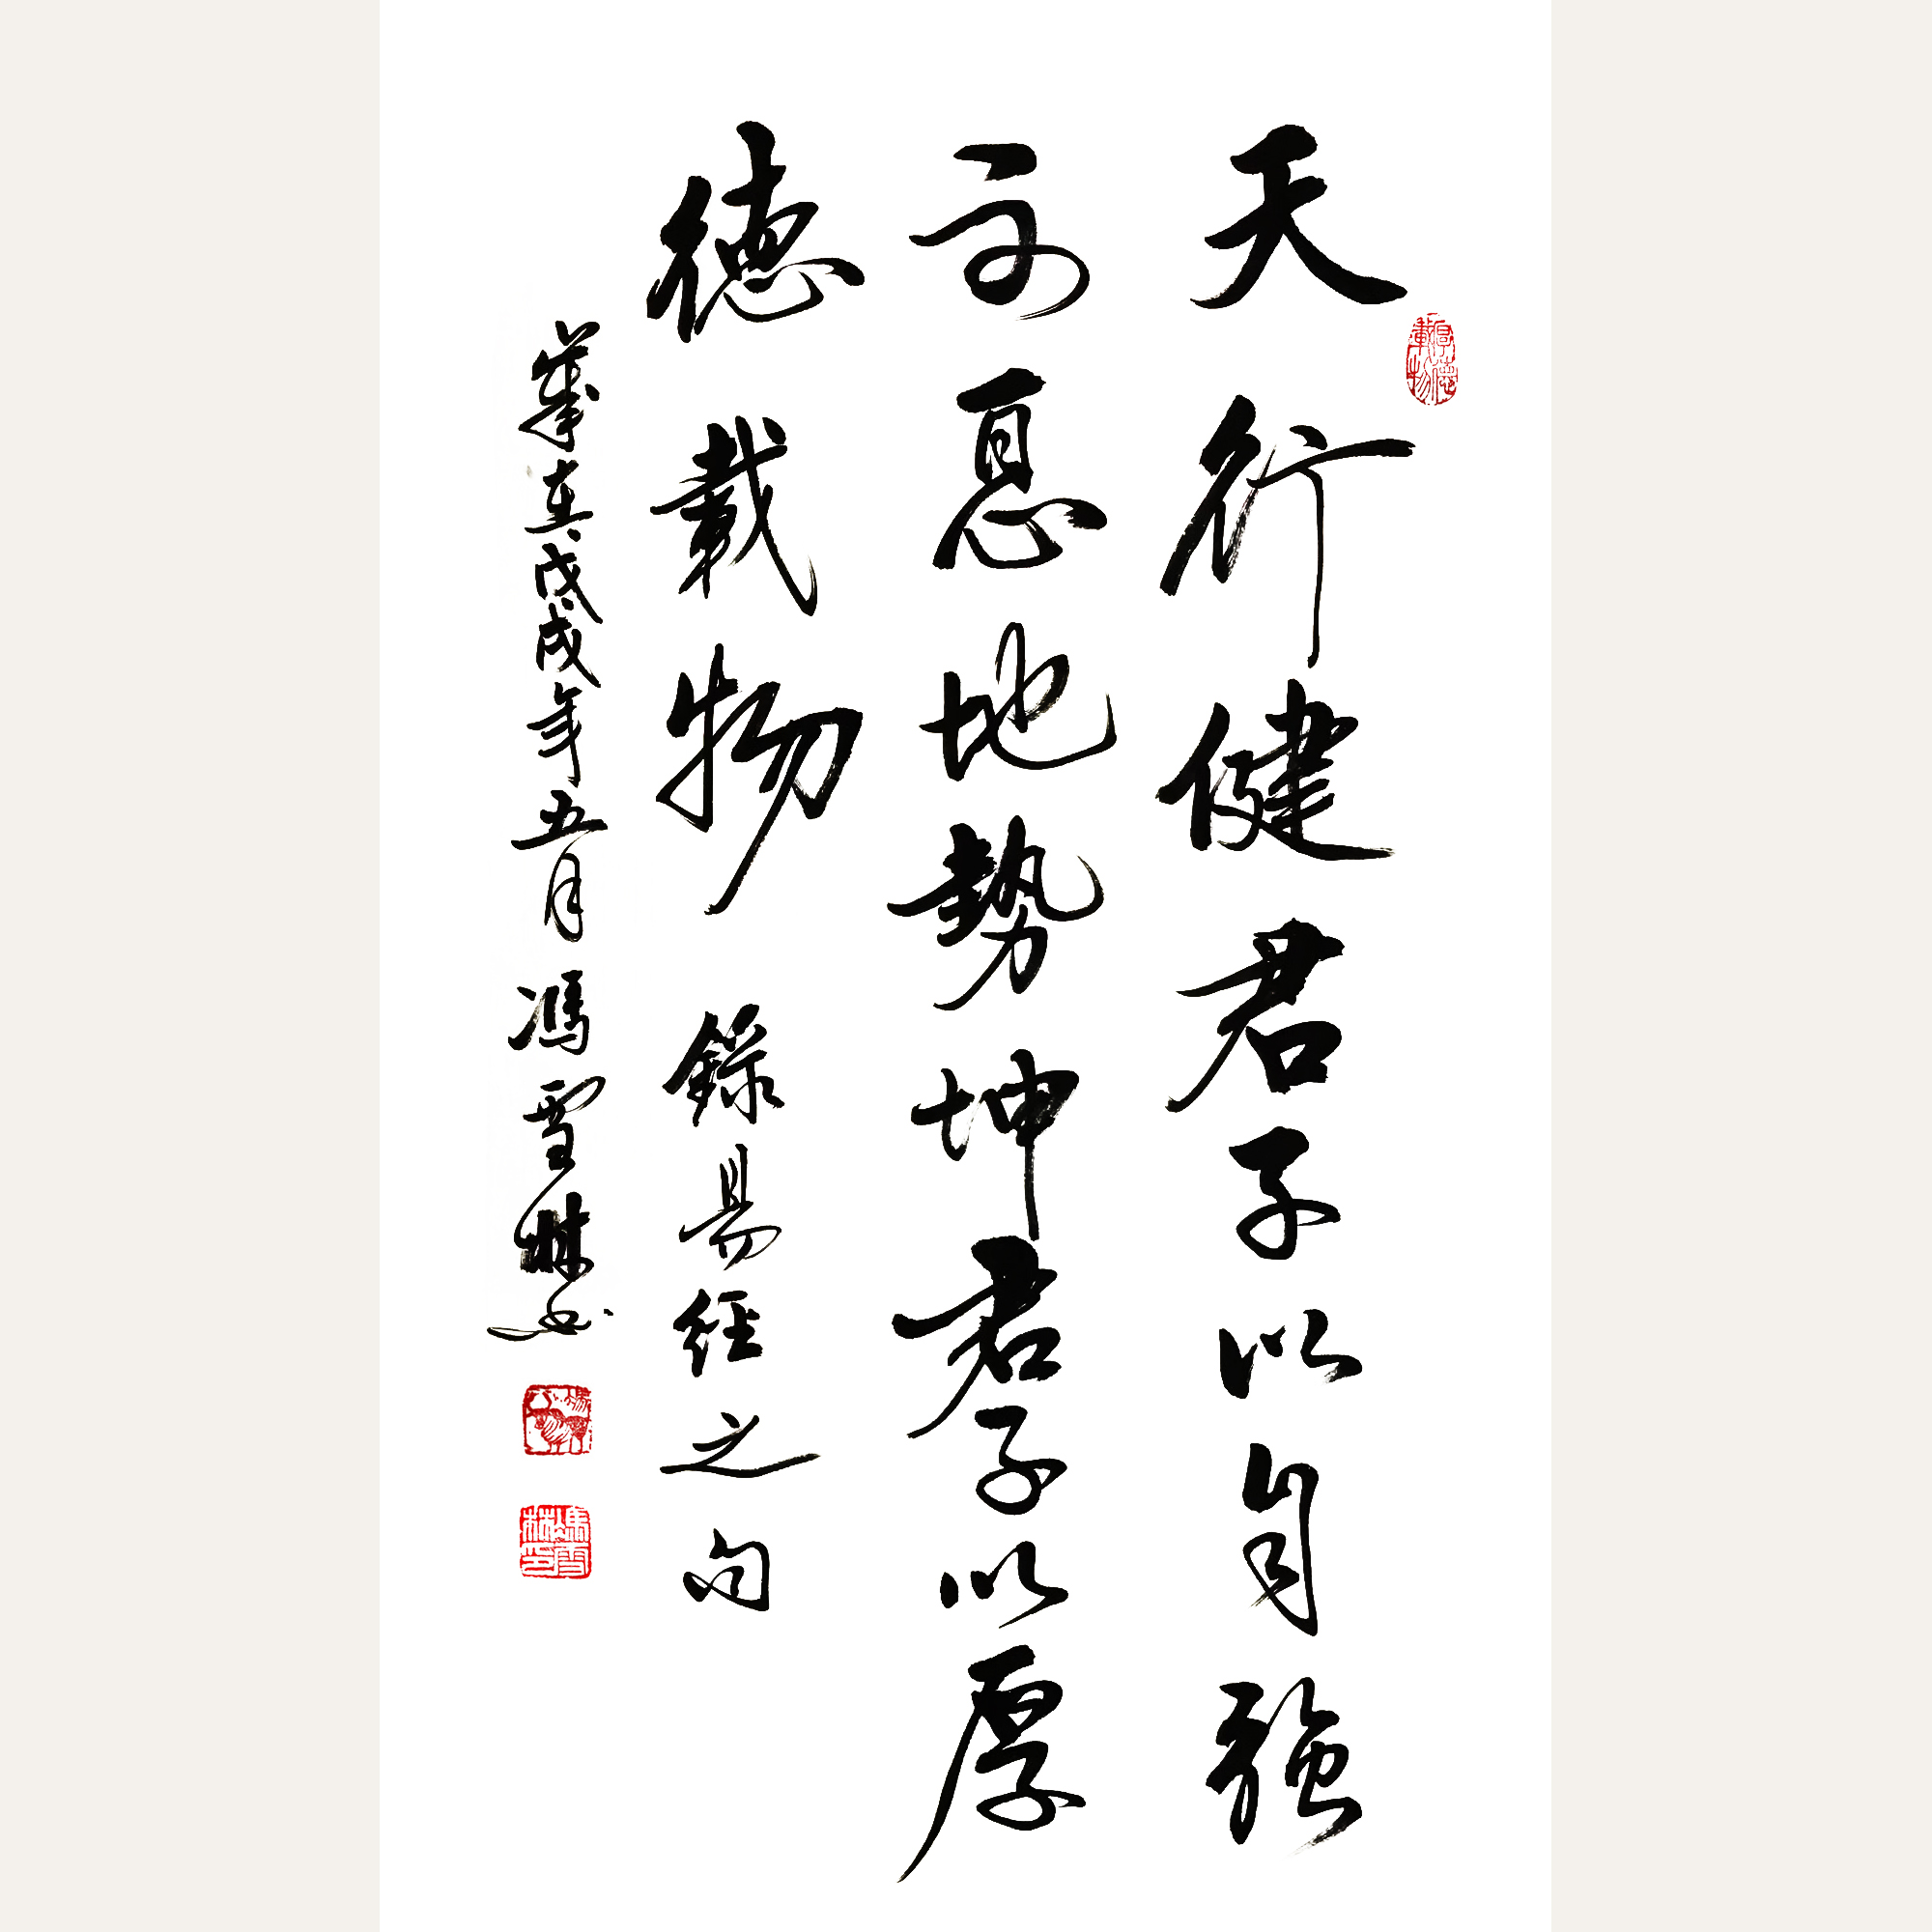 天行健君子以自強
不息地勢坤君子以厚
德載物 錄易經之句
歲在戊戌年五月 馮雪林書
厚德載物
馮雪林印